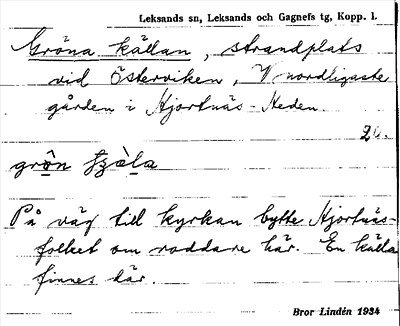 Leksands sn, Leksands och Gagnefs tg, Kopp. l.
Gröna källan, strandplats
vid Österviken, V nordligaste
gården i Hjortnäs-Heden.
20.
På väg till kyrkan bytte Hjortnäs-
folket om roddare här. En källa
finnes här.
Bror Lindén 1934